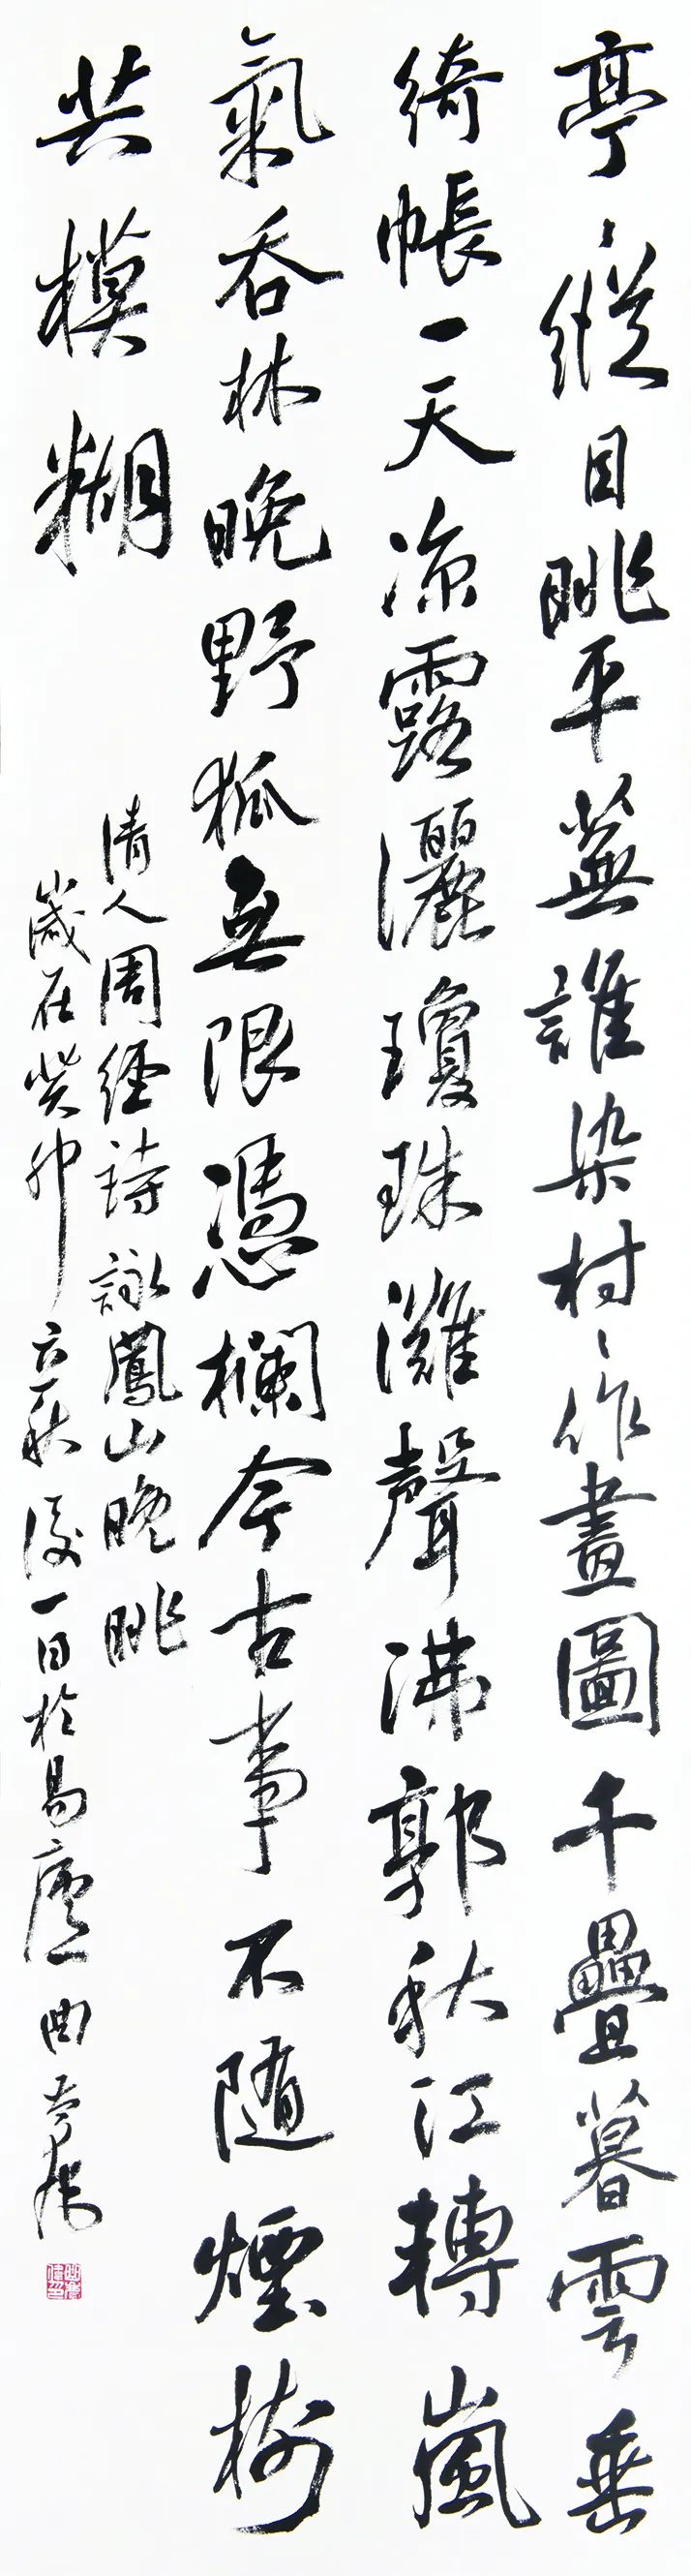 亭〻縱目眺平蕪誰染村〻作畫圖千疊暮雲垂
綺帳一天涼露灑瓊珠灘聲沸郭秋江轉嵐
氣吞林晚野狐無限憑欄今古事不隨煙樹
共模糊
清人周經詩詠鳳山晚眺
歲在癸卯立秋後一日於易廬曲